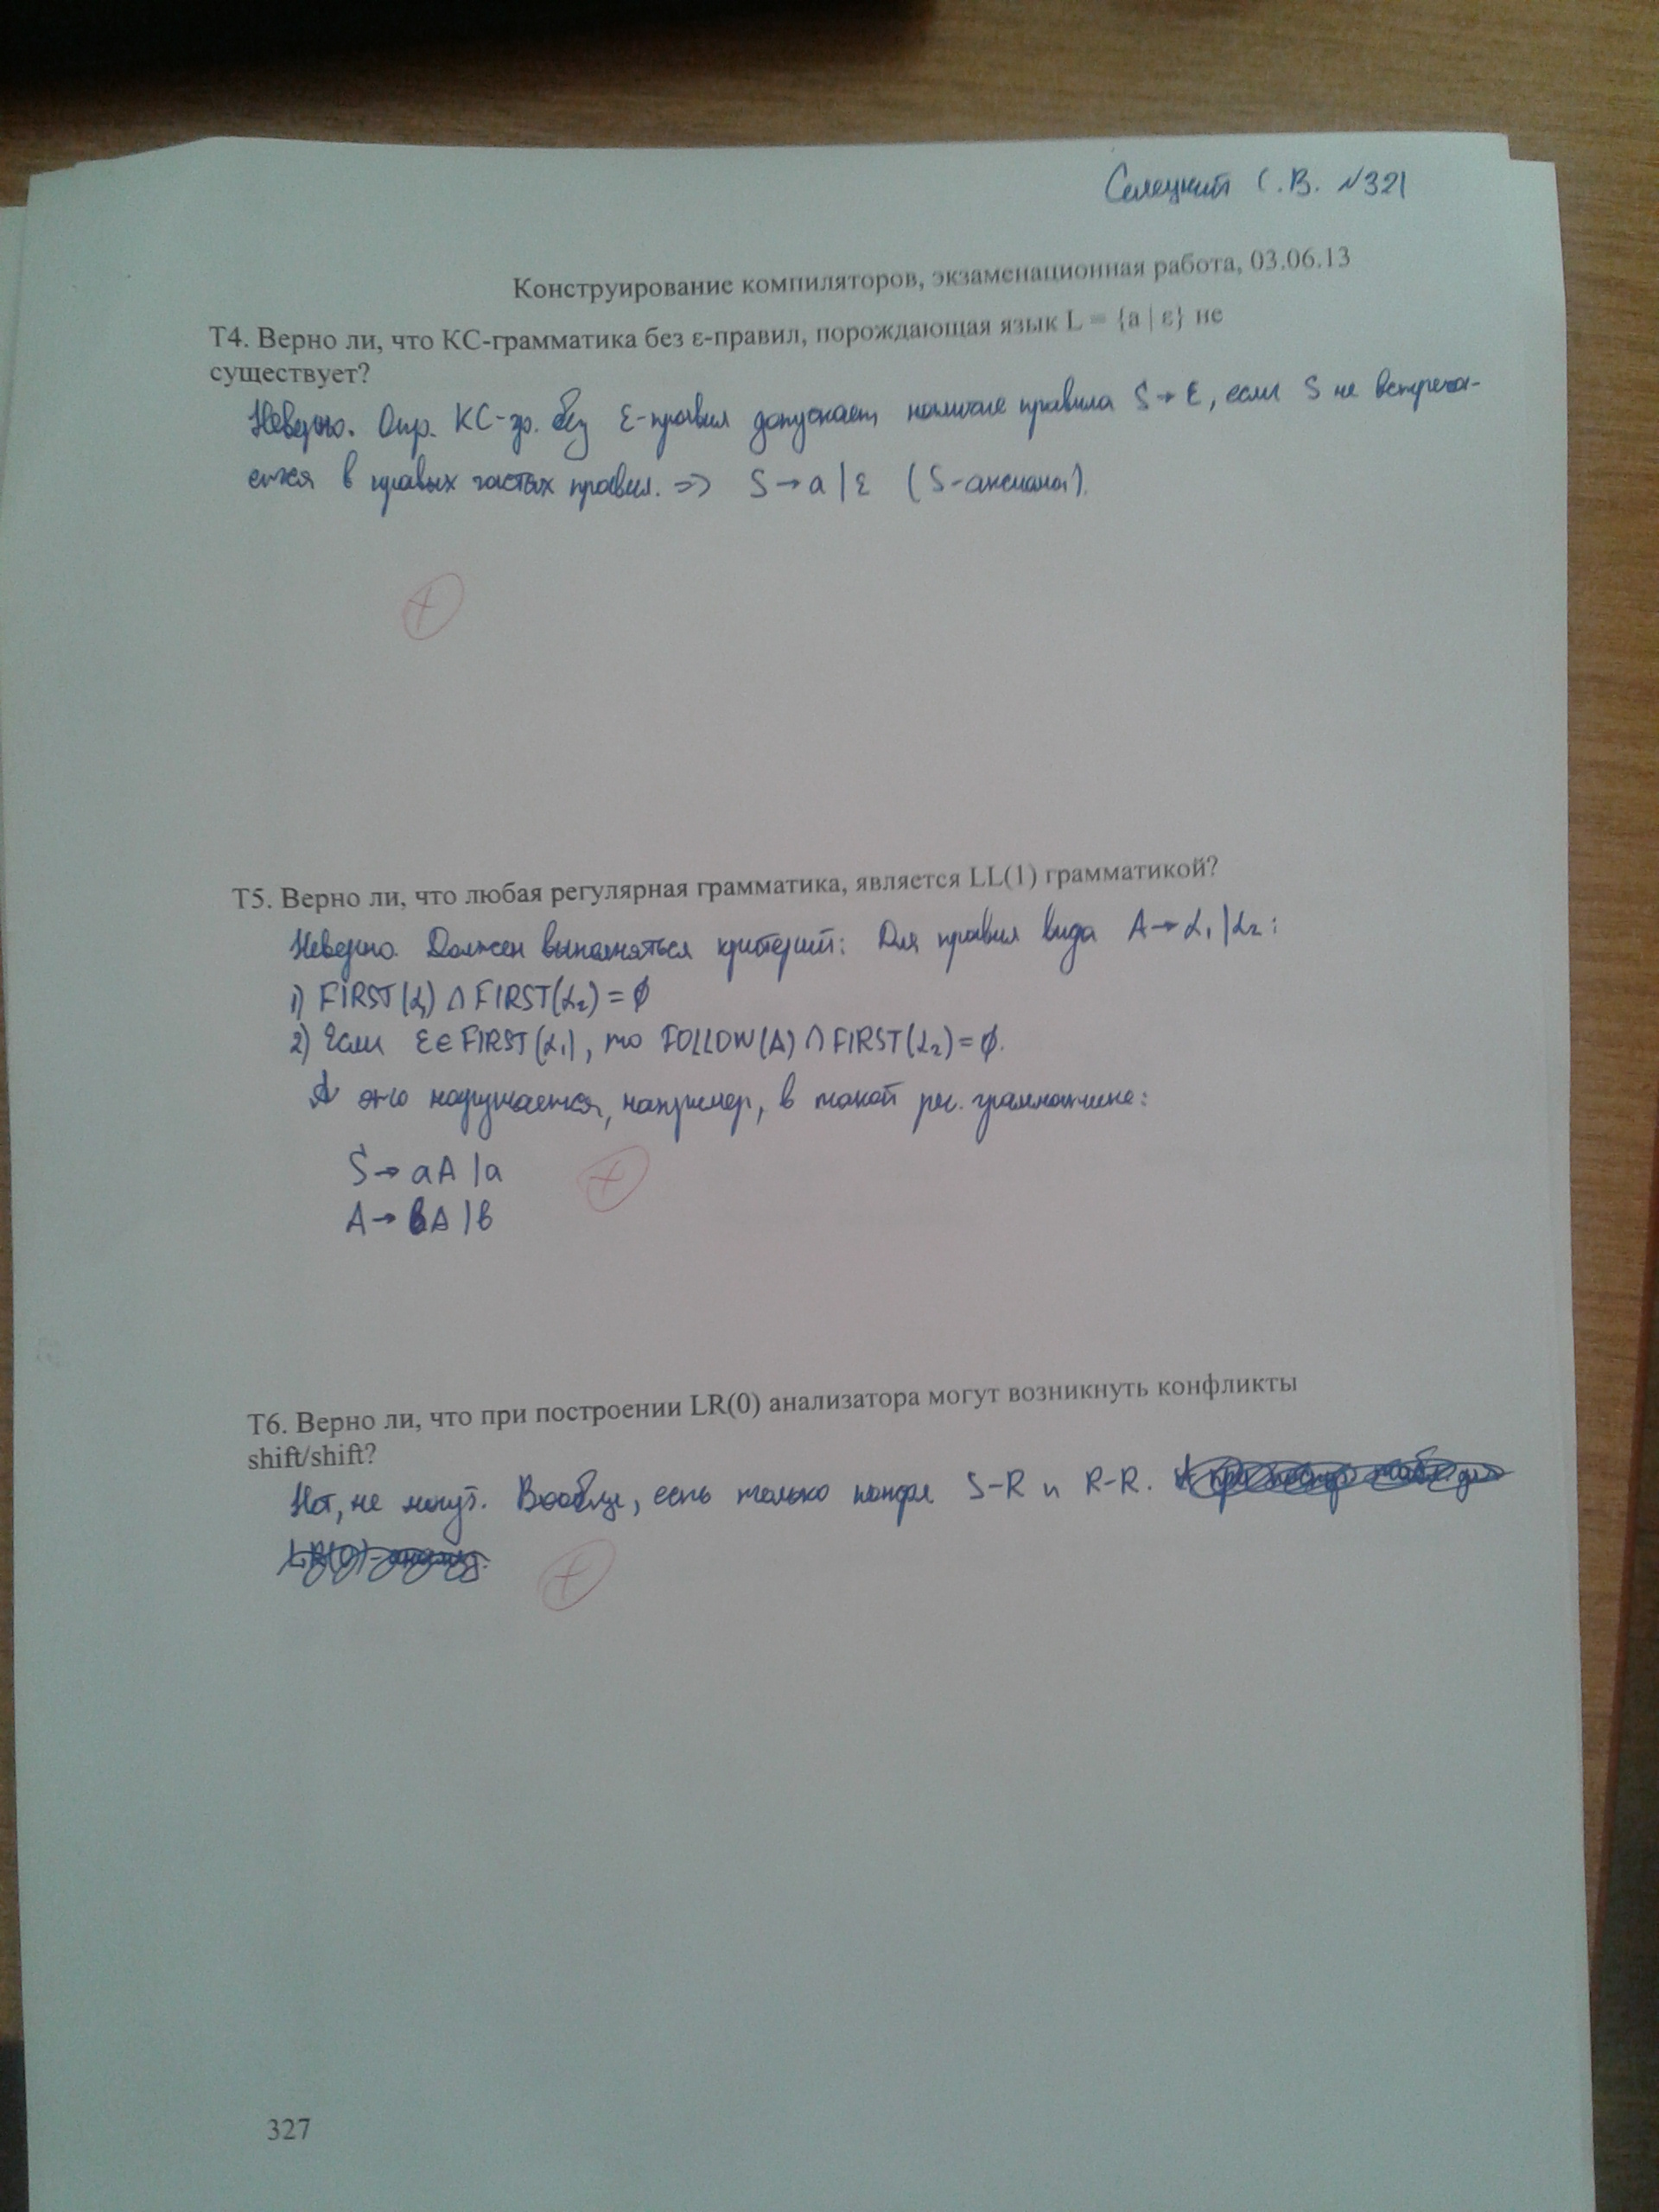 Селецкий С.В. №321
Конструирование компиляторов, экзаменационная работа, 03.06.13
Т4. Верно ли, что КС-грамматика без ε-правил, порождающая язык L = {a | ε} не
существует?
Неверно. Опр. КС-гр. без ε-правил допускает наличие правила S→ε, если S не встреча-
ется в правых частях правил. => S→a|ε (S-аксиома).
Т5. Верно ли, что любая регулярная грамматика, является LL(1) грамматикой?
Неверно. Должен выполняться критерий: Для правил вида A→α₁|α₂:
1) FIRST(α₁) ∩ FIRST(α₂) = ∅
2) Если ε∈FIRST(α₁), то FOLLOW(A) ∩ FIRST(α₂) = ∅.
А это нарушается, например, в такой рег. грамматике:
S→aA|a
A→bA|b
Т6. Верно ли, что при построении LR(0) анализатора могут возникнуть конфликты
shift/shift?
Нет, не могут. Вообще, есть только конфл S-R и R-R.
327